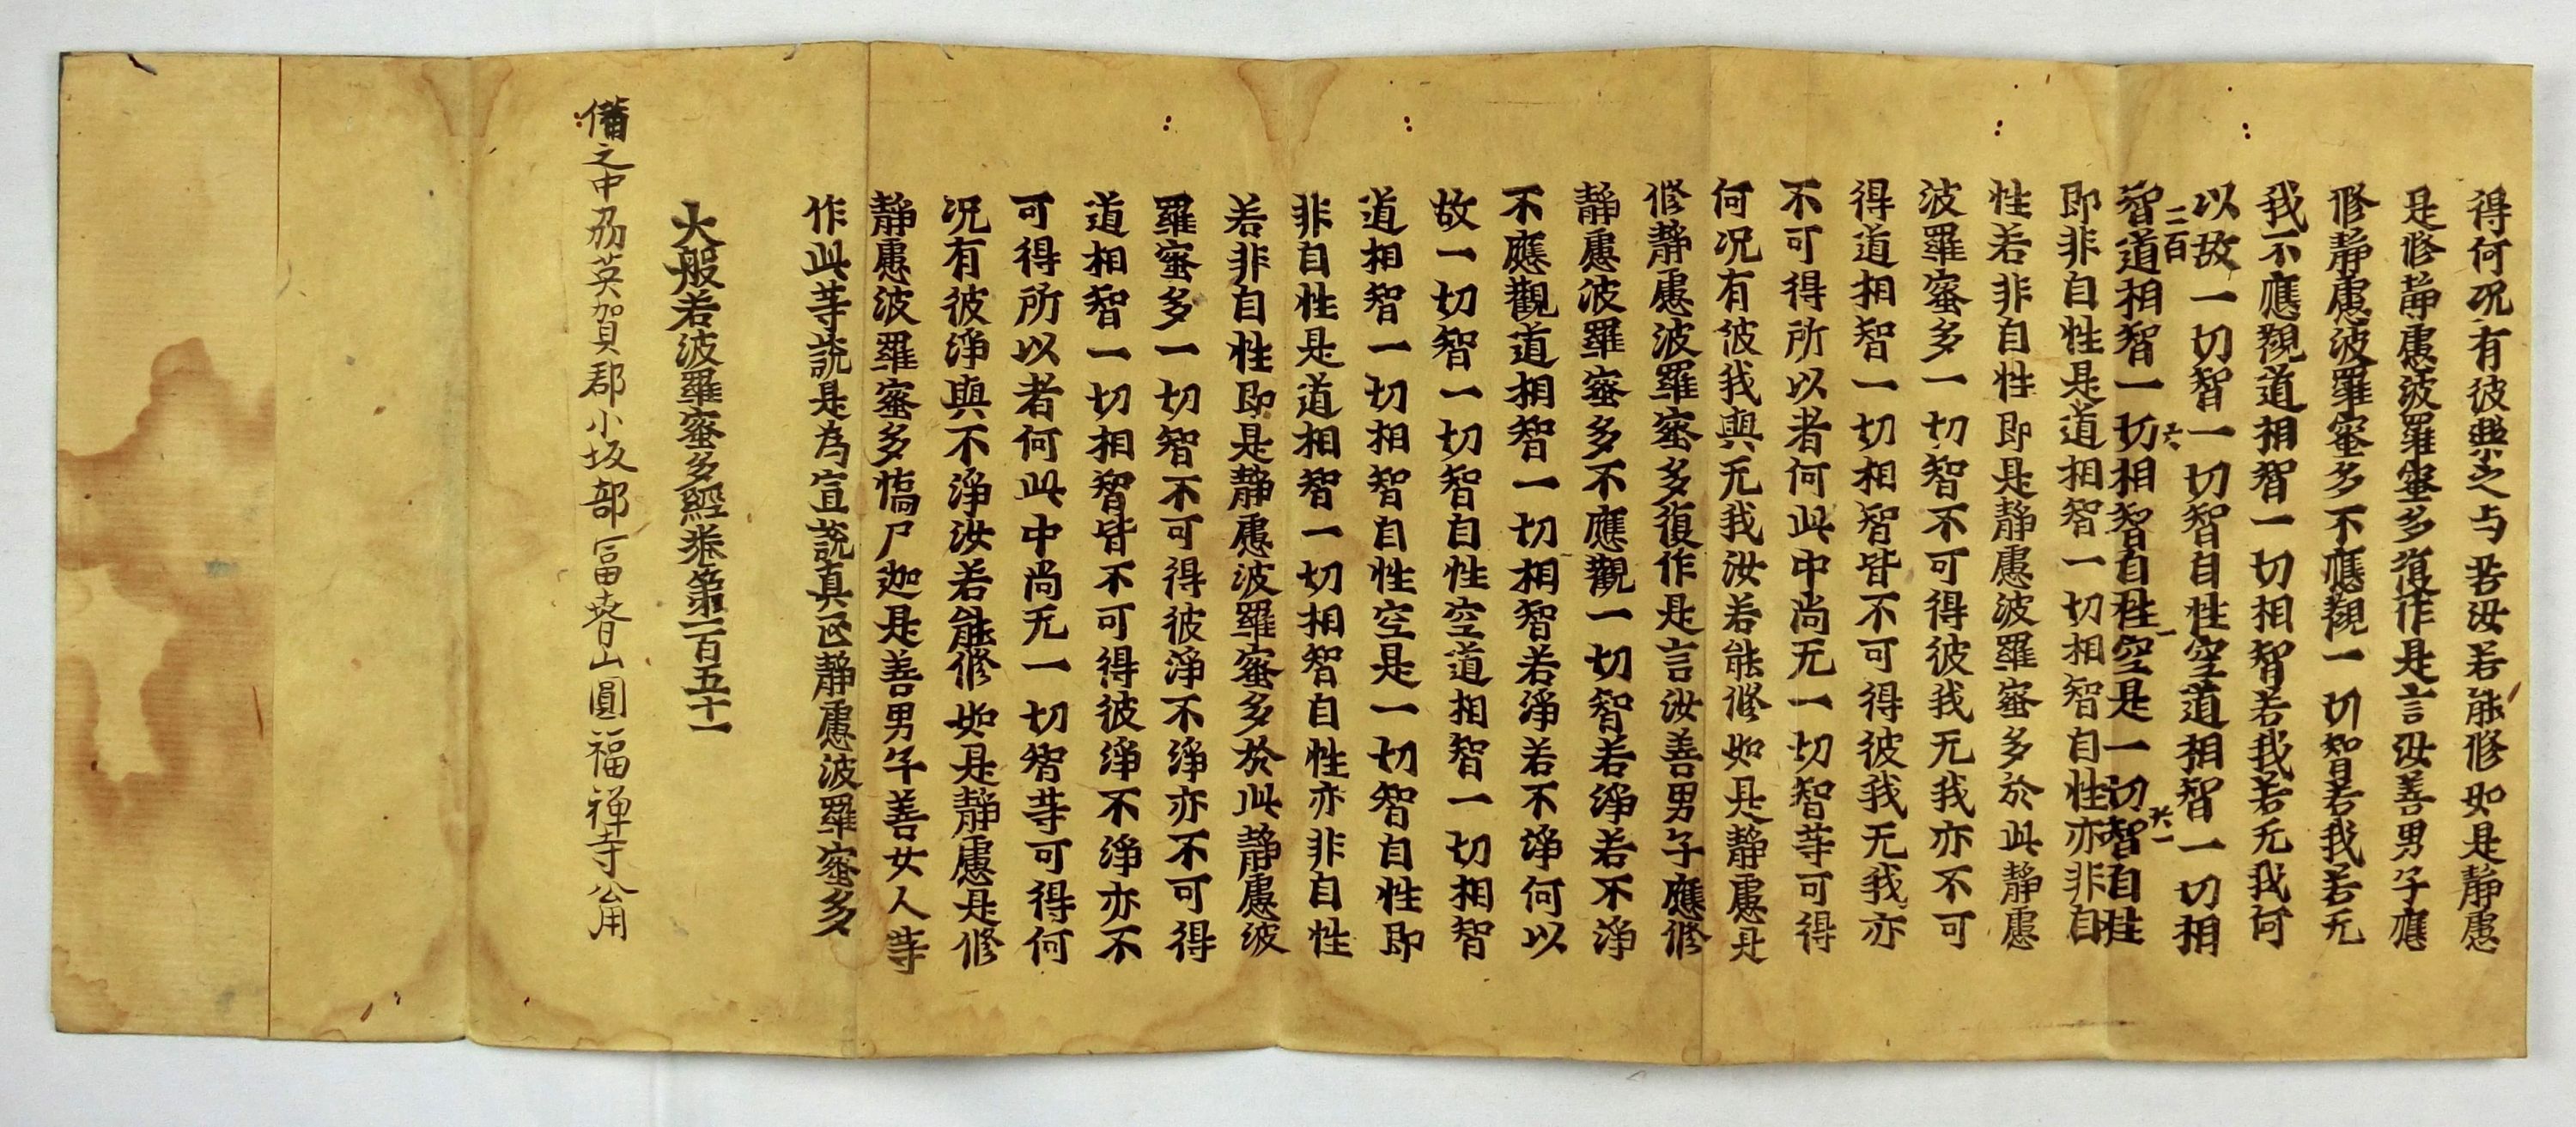 得何況有彼樂之与苦汝若能修如是靜慮
是修靜慮波羅蜜多復作是言汝善男子應
修靜慮波羅蜜多不應觀一切智若我若无
我不應觀道相智一切相智若我若无我何
以故一切智一切智自性空道相智一切相
二百 六 一 六一
智道相智一切相智自性空是一切智自性
即非自性是道相智一切相智自性亦非自
性若非自性即是靜慮波羅蜜多於此靜慮
波羅蜜多一切智不可得彼我无我亦不可
得道相智一切相智皆不可得彼我无我亦
不可得所以者何此中尚无一切智等可得
何況有彼我與无我汝若能修如是靜慮是
修靜慮波羅蜜多復作是言汝善男子應修
靜慮波羅蜜多不應觀一切智若淨若不淨
不應觀道相智一切相智若淨若不淨何以
故一切智一切智自性空道相智一切相智
道相智一切相智自性空是一切智自性即
非自性是道相智一切相智自性亦非自性
若非自性即是靜慮波羅蜜多於此靜慮波
羅蜜多一切智不可得彼淨不淨亦不可得
道相智一切相智皆不可得彼淨不淨亦不
可得所以者何此中尚无一切智等可得何
況有彼淨與不淨汝若能修如是靜慮是修
靜慮波羅蜜多憍尸迦是善男子善女人等
作此等說是為宣說真正靜慮波羅蜜多
大般若波羅蜜多經卷第一百五十一
備之中刕英賀郡小坂部冨春山圓福禅寺公用